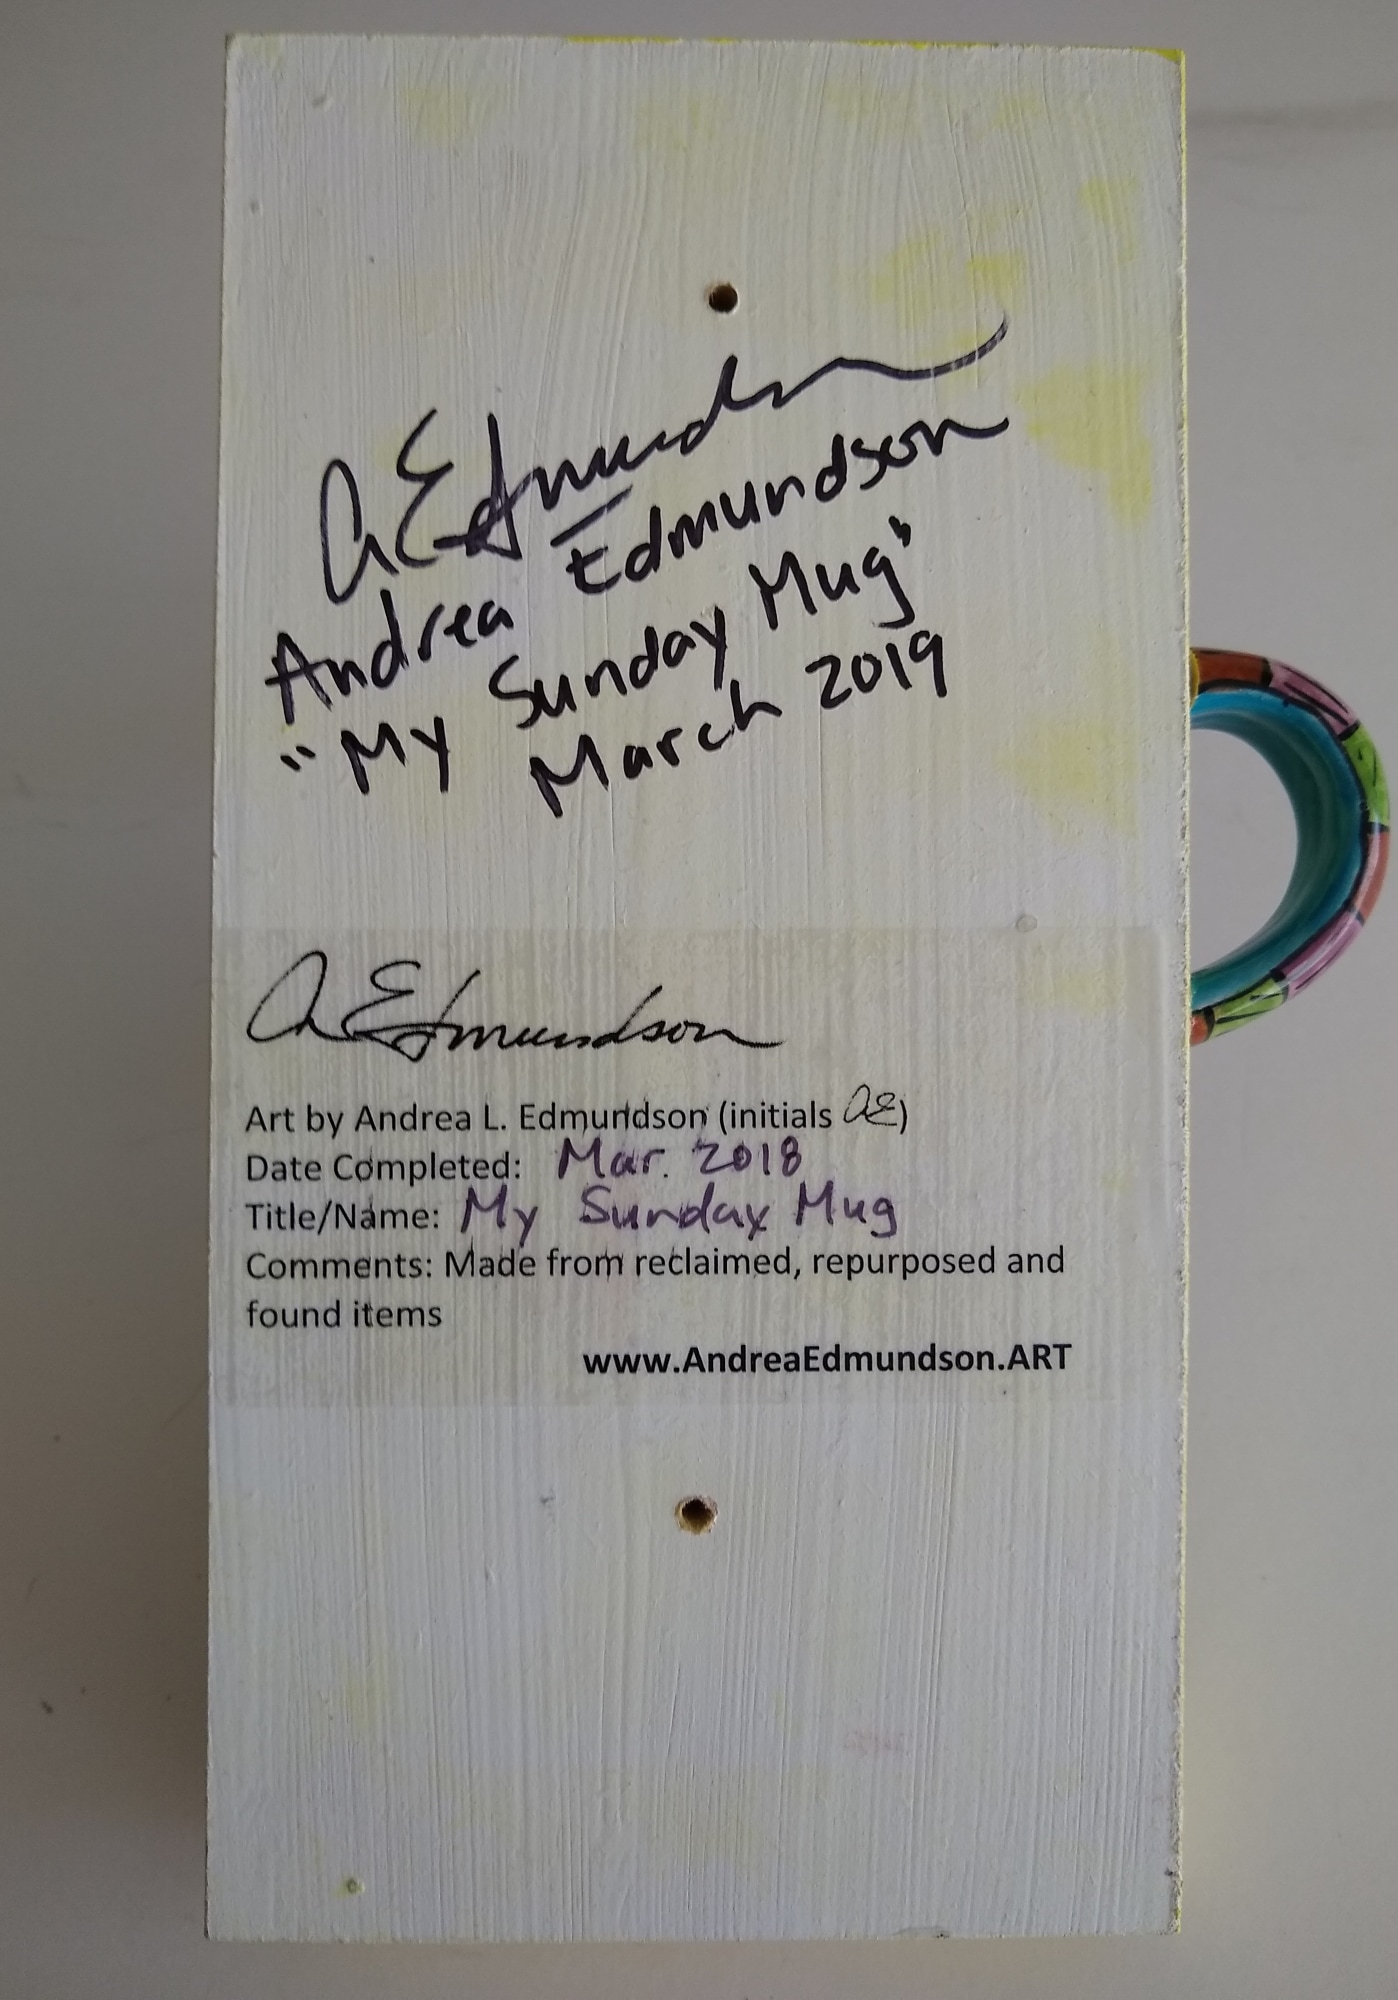 A Edmundson
Andrea Edmundson
"My Sunday Mug"
March 2019
A Edmundson
Art by Andrea L. Edmundson (initials AE)
Date Completed: Mar. 2018
Title/Name: My Sunday Mug
Comments: Made from reclaimed, repurposed and
found items
www.AndreaEdmundson.ART